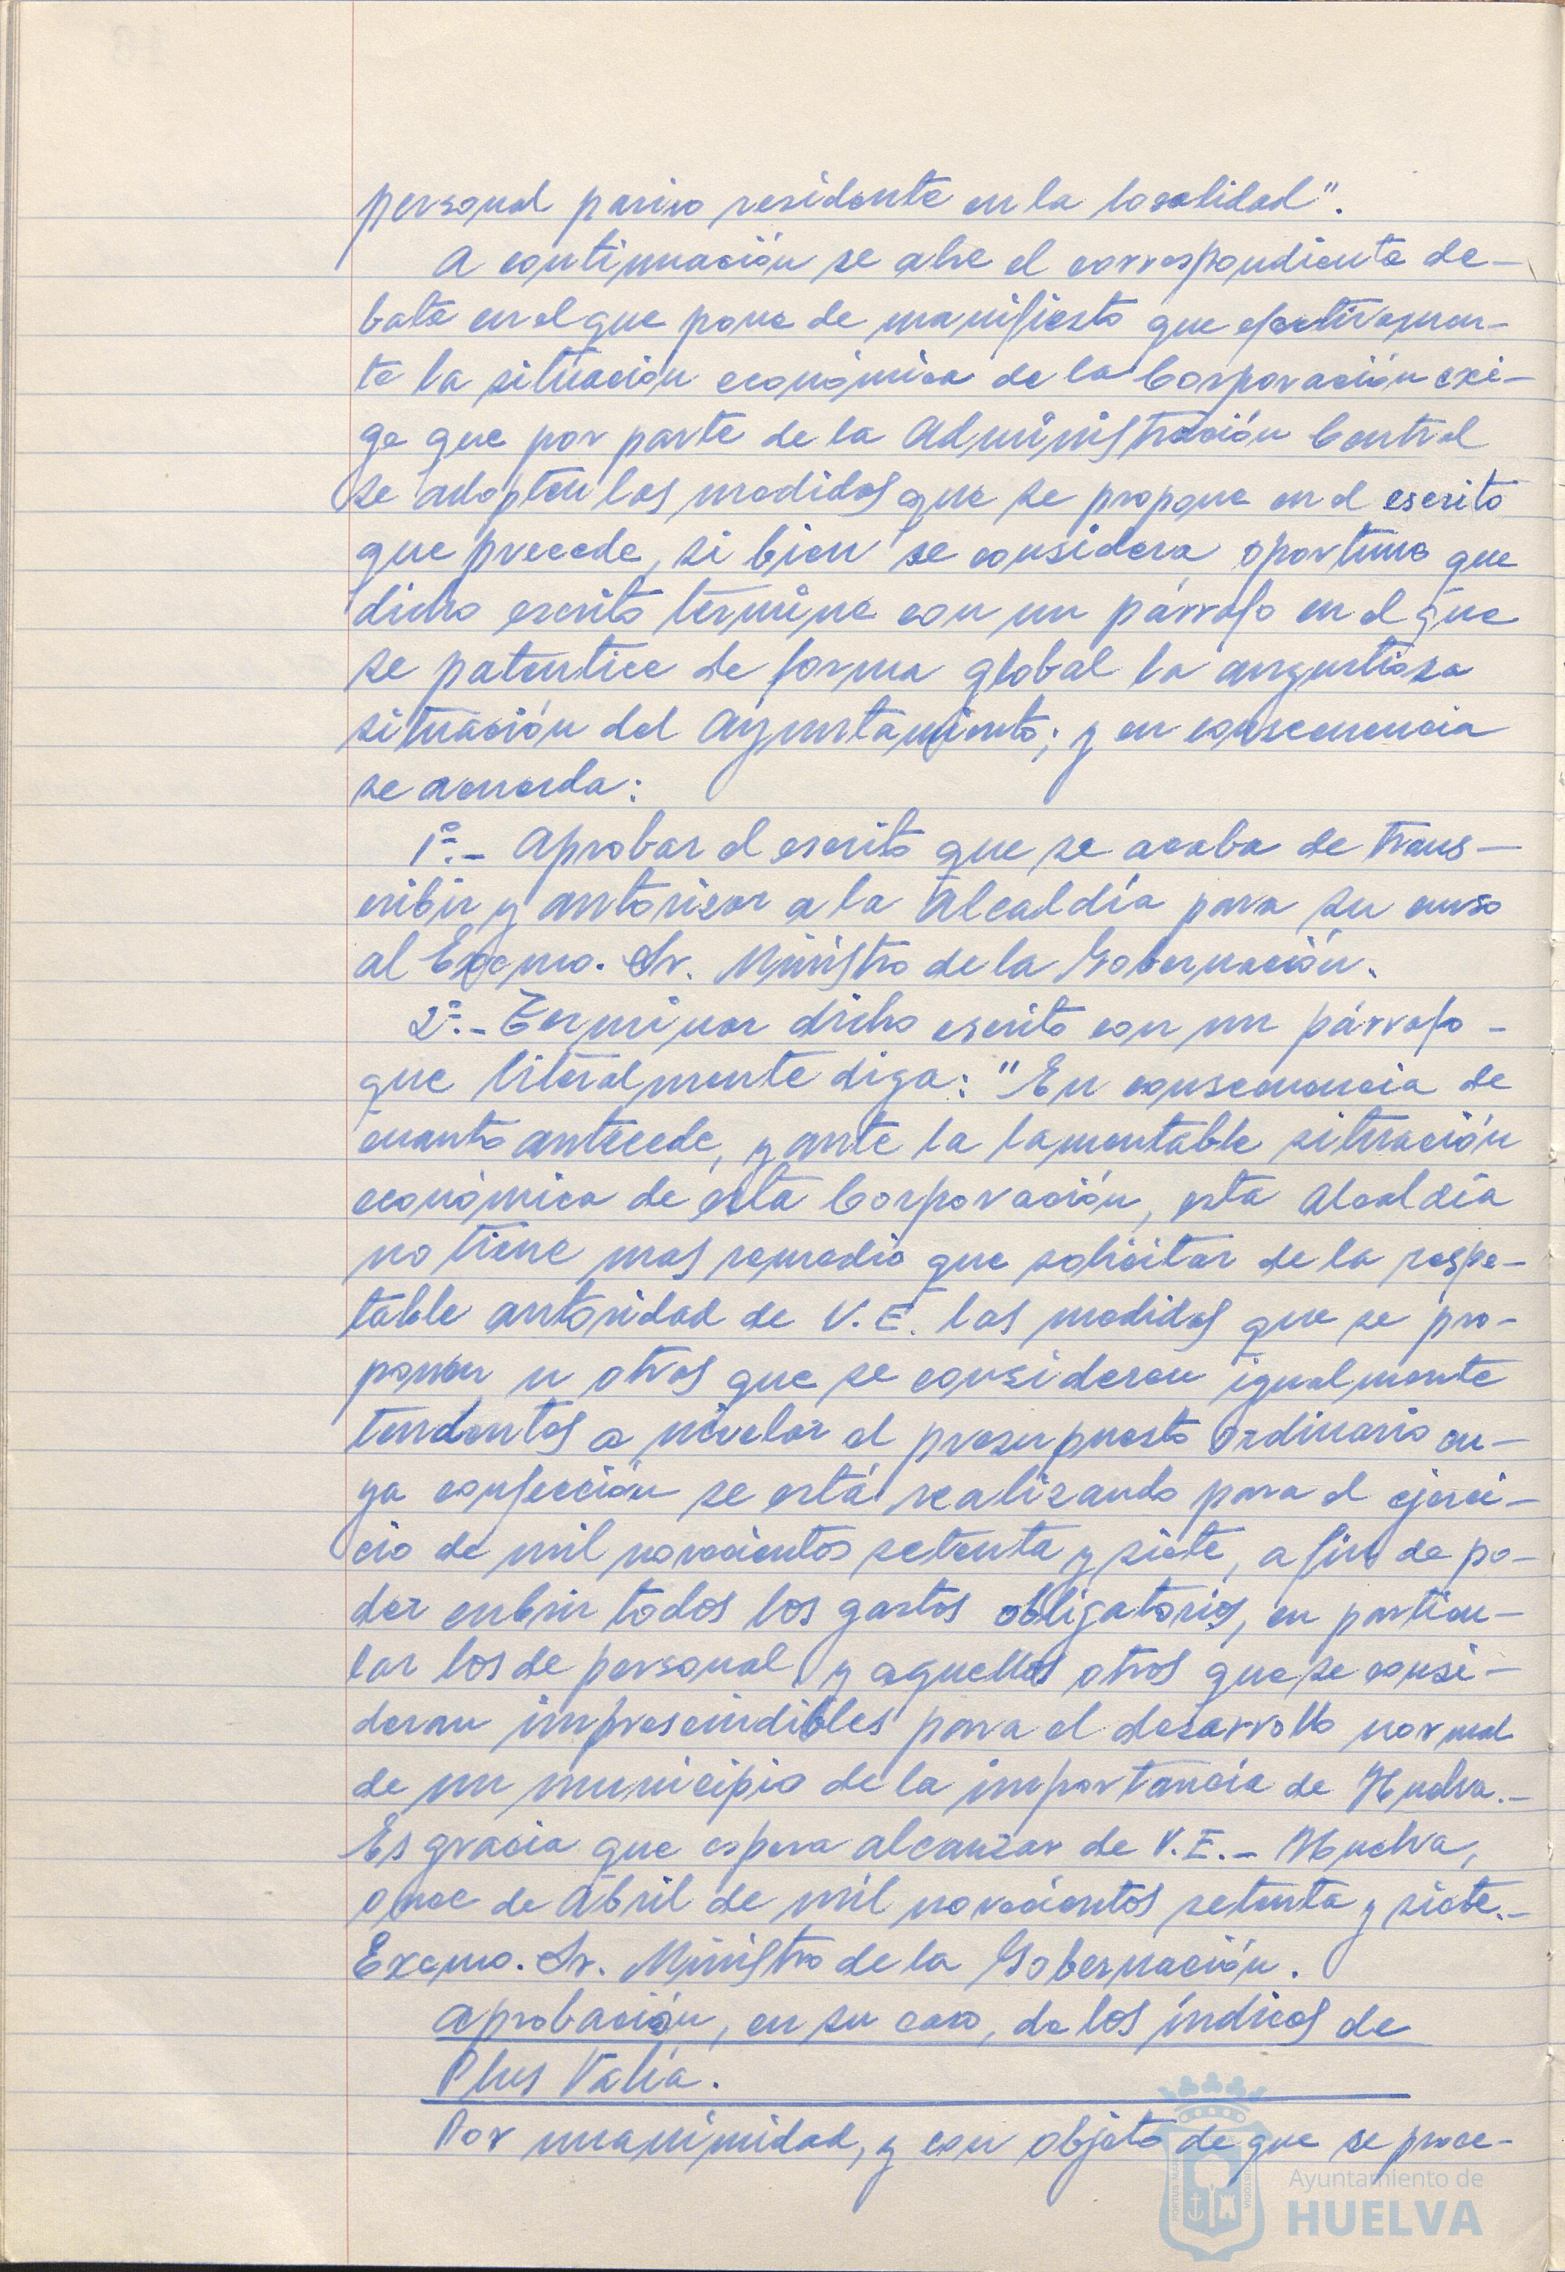 personal pasivo residente en la localidad".
A continuación se abre el correspondiente de-
bate en el que pone de manifiesto que efectivamen-
te la situación económica de la Corporación exi-
ge que por parte de la Administración Central
se adopten las medidas que se propone en el escrito
que precede, si bien se considera oportuno que
dicho escrito termine con un párrafo en el que
se patentice de forma global la angustiosa
situación del Ayuntamiento; y en consecuencia
se acuerda:
1º.- Aprobar el escrito que se acaba de trans-
cribir y autorizar a la Alcaldía para su curso
al Excmo. Sr. Ministro de la Gobernación.
2º.- Terminar dicho escrito con un párrafo -
que literalmente diga: "En consecuencia de
cuanto antecede, y ante la lamentable situación
económica de esta Corporación, esta Alcaldía
no tiene mas remedio que solicitar de la respe-
table autoridad de V.E. las medidas que se pro-
ponen u otras que se consideren igualmente
tendentes a nivelar el presupuesto ordinario cu-
ya confección se está realizando para el ejerci-
cio de mil novecientos setenta y siete, a fin de po-
der cubrir todos los gastos obligatorios, en particu-
lar los de personal y aquellos otros que se consi-
deran imprescindibles para el desarrollo normal
de un municipio de la importancia de Huelva.-
Es gracia que espera alcanzar de V.E.- Huelva,
once de Abril de mil novecientos setenta y siete.-
Excmo. Sr. Ministro de la Gobernación.
Aprobación, en su caso, de los índices de
Plus Valía.
Por unanimidad, y con objeto de que se proce-
Ayuntamiento de
HUELVA